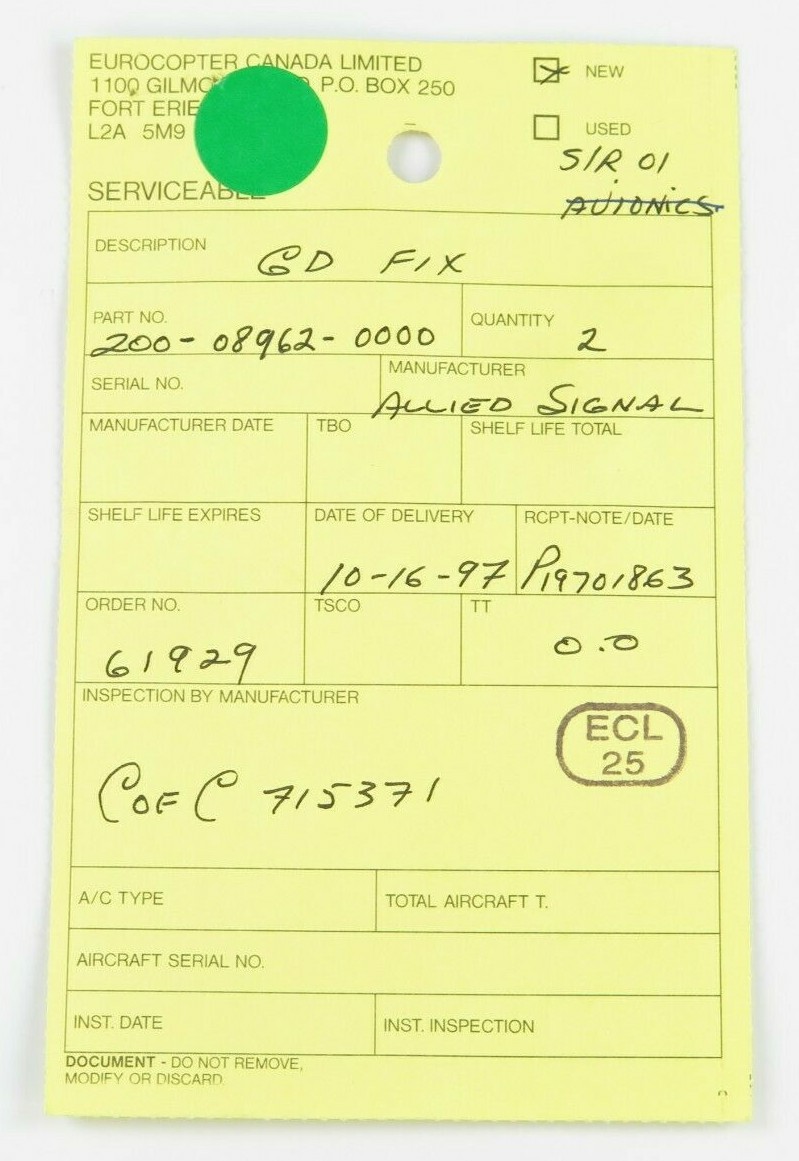 EUROCOPTER CANADA LIMITED
1100 GILMO P.O. BOX 250
FORT ERIE
L2A 5M9
NEW
USED
S/R 01
AVIONICS
SERVICEABLE
DESCRIPTION
GD FIX
PART NO.
200-08962-0000
QUANTITY
2
SERIAL NO.
MANUFACTURER
ALLIED SIGNAL
MANUFACTURER DATE
TBO
SHELF LIFE TOTAL
SHELF LIFE EXPIRES
DATE OF DELIVERY
10-16-97
RCPT-NOTE/DATE
P19701863
ORDER NO.
61929
TSCO
TT
0.0
INSPECTION BY MANUFACTURER
ECL
25
C OF C 715371
A/C TYPE
TOTAL AIRCRAFT T.
AIRCRAFT SERIAL NO.
INST. DATE
INST. INSPECTION
DOCUMENT - DO NOT REMOVE,
MODIFY OR DISCARD